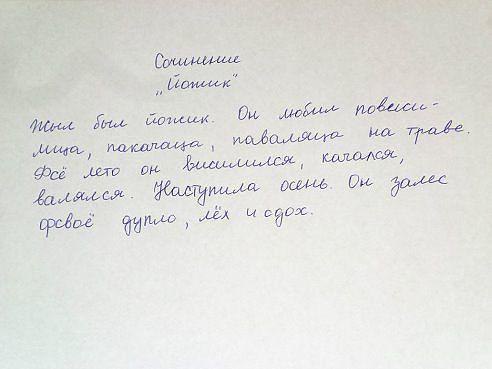 Сочинение
„Йожик"
Жыл был йожик. Он любил повеси-
лица, пакачаца, паваляца на траве.
Фсё лето он висилился, качался,
валялся. Наступила осень. Он залес
фсваё дупло, лёх и сдох.